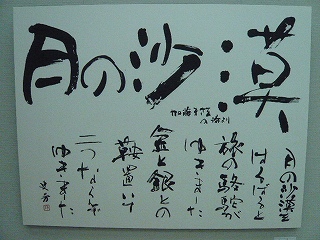 月の沙漠
月の沙漠を
はるばると
旅の駱駝が
ゆきました
金と銀との
鞍置いて
二つならんで
ゆきました